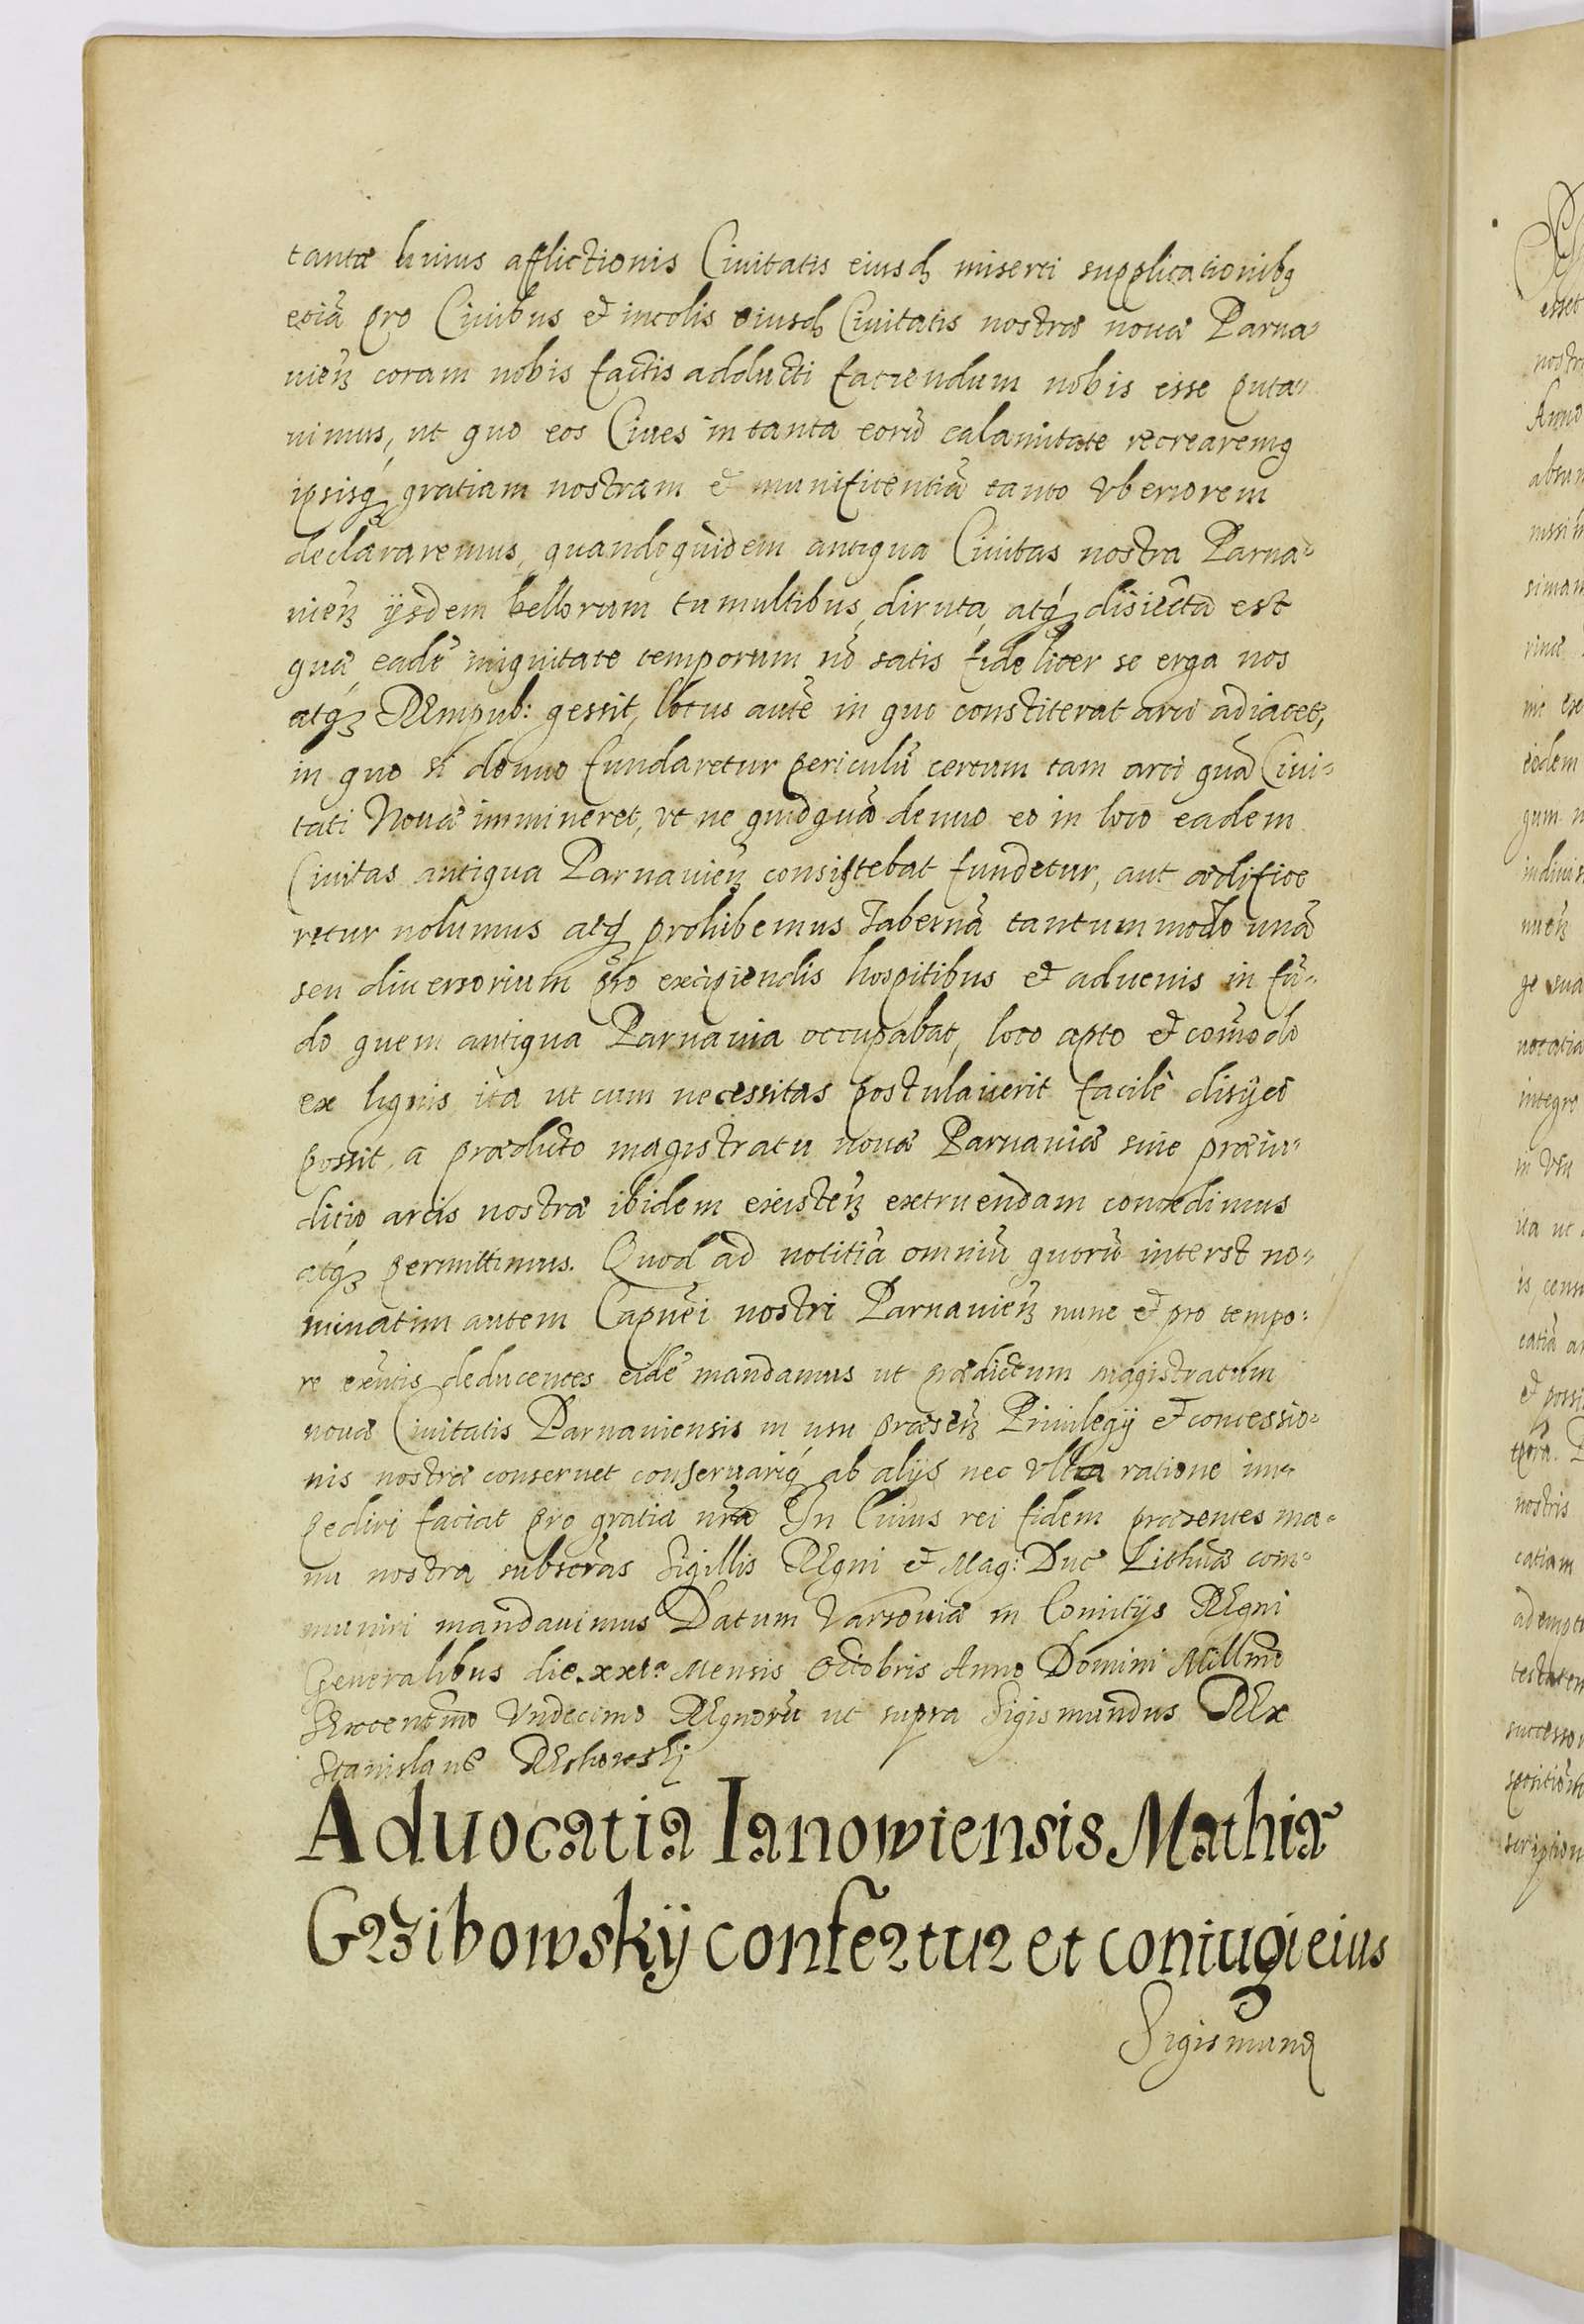 tantæ huius afflictionis Ciuitatis eiusd miserti supplicationibq
etiã pro Ciuibus et incolis eiusd Ciuitatis nostræ nouæ Parna-
uieñ coram nobis factis adducti faciendum nobis esse puta-
uimus, ut quo eos Ciues in tanta eorũ calamitate recrearemq
ipsisq gratiam nostram et munificentiã tanto vberiorem
declararemus, quandoquidem antiqua Ciuitas nostra Parna-
uieñ ijsdem bellorum tumultibus diruta, atq disiecta est
quæ eadẽ iniquitate temporum nõ satis fideliter se erga nos
atq REmpub: gessit, locus autẽ in quo constiterat arci adiacet,
in quo si denuo fundaretur periculũ certum tam arci quã Ciui-
tati Nouæ immineret, vt ne quidquã denuo eo in loco eadem
Ciuitas antiqua Parnauieñ consistebat fundetur, aut ædifice
retur nolumus atq prohibemus Tabernã tantummodo unã
seu diuersorium pro excipiendis hospitibus et aduenis in fũ-
do quem antiqua Parnauia occupabat, loco apto et com̃odo
ex lignis ita ut cum necessitas postulauerit facilè disijci
possit, a prædicto magistratu nouæ Parnauiæ sine præiu-
dicio arcis nostræ ibidem existeñ extruendam concedimus
atq permittimus. Quod ad notitiã omniũ quorũ interst no-
minatim autem Capnei nostri Parnauieñ nunc et pro tempo-
re exñtis deducentes eidẽ mandamus ut prædictum magistratum
nouæ Ciuitatis Parnauiensis in usu præseñ Priuilegij et concessio-
nis nostræ conseruet conseruariq ab alijs nec vlla ratione im-
pediri faciat pro gratia nr̃a In Cuius rei fidem præsentes ma-
nu nostra subscr̃as Sigillis REgni et Mag: Duc Lithuæ com-
muniri mandauimus Datum Varsouiæ in Comitijs REgni
Generalibus die xxi.a Mensis Octobris Anno Domini Millmo
SExcentmo Vndecimo REgnorũ ut supra Sigismundus REx
Stanislaus
Aduocatia Ianowiensis Mathiæ
Grzibowskÿ confertur et coniugi eius
Sigismund